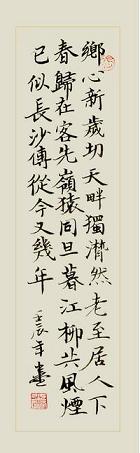 鄉心新歲切天畔獨潸然老至居人下
春歸在客先嶺猿同旦暮江柳共風煙
已似長沙傅從今又幾年
壬辰年書